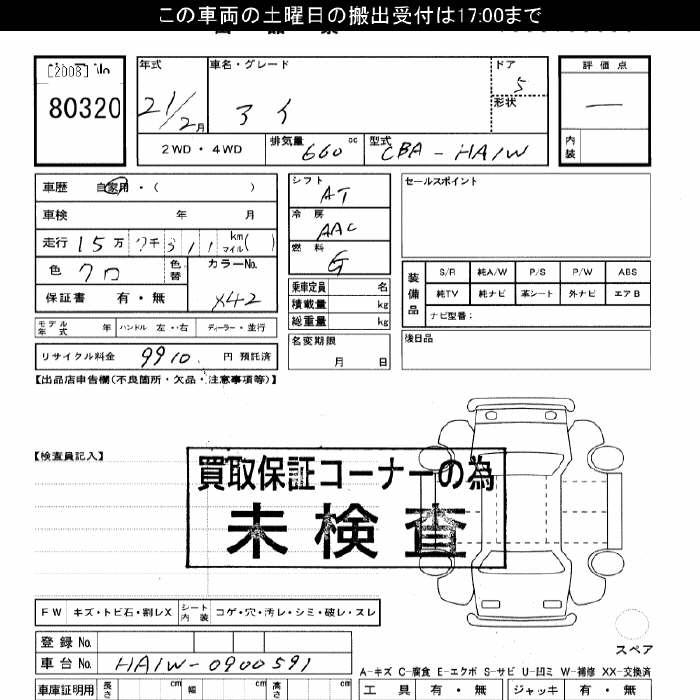 この車両の土曜日の搬出受付は17:00まで
[2008] No
80320
年式
21/2月
車名・グレード
アイ
ドア
5
形状
評価点
—
内装
2WD・4WD
排気量
660 cc
型式
CBA-HA1W
車歴 自家用・( )
車検 年 月
走行 15万7千311 km マイル( )
色 クロ
色替
カラーNo.
X42
保証書 有・無
モデル年式 年 ハンドル 左・右 ディーラー・並行
リサイクル料金 9910 円 預託済
シフト
AT
冷房
AAC
燃料
G
乗車定員 名
積載量 kg
総重量 kg
名変期限
月 日
セールスポイント
装備品
S/R 純A/W P/S P/W ABS
純TV 純ナビ 革シート 外ナビ エアB
ナビ型番:
後日品
【出品店申告欄(不良箇所・欠品・注意事項等)】
【検査員記入】
買取保証コーナーの為
未検査
FW キズ・トビ石・割レX シート内装 コゲ・穴・汚レ・シミ・破レ・スレ
スペア
登録No.
車台No. HA1W-0900591
A-キズ C-腐食 E-エクボ S-サビ U-凹ミ W-補修 XX-交換済
車庫証明用 長さ cm 幅 cm 高さ cm
工具 有・無 ジャッキ 有・無